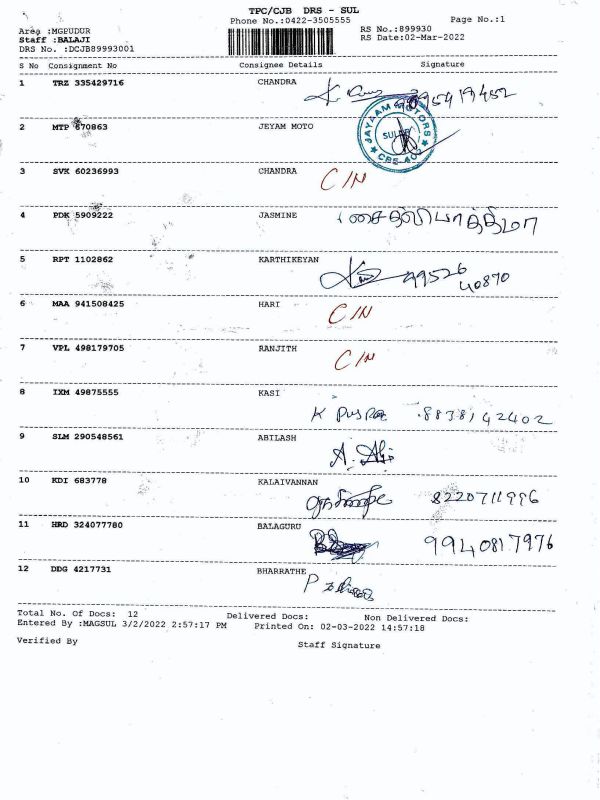 TPC/CJB DRS - SUL
Phone No.:0422-3505555
Page No.:1
Area :MGPUDUR
RS No.:899930
Staff :BALAJI
RS Date:02-Mar-2022
DRS No. :DCJB89993001
S No Consignment No Consignee Details Signature
1 TRZ 335429716 CHANDRA
2 MTP 670863 JEYAM MOTO
JAYAAM MOTORS
SULUR
3 SVK 60236993 CHANDRA C/N
4 PDK 5909222 JASMINE
5 RPT 1102862 KARTHIKEYAN
99526
40870
6 MAA 941508425 HARI C/N
7 VPL 498179705 RANJITH C/N
8 IXM 49875555 KASI
K Puspa 8838142402
9 SLM 290548561 ABILASH
10 KDI 683778 KALAIVANNAN
8220711996
11 HRD 324077780 BALAGURU
9940817976
12 DDG 4217731 BHARRATHE
Total No. Of Docs: 12 Delivered Docs: Non Delivered Docs:
Entered By :MAGSUL 3/2/2022 2:57:17 PM Printed On: 02-03-2022 14:57:18
Verified By Staff Signature